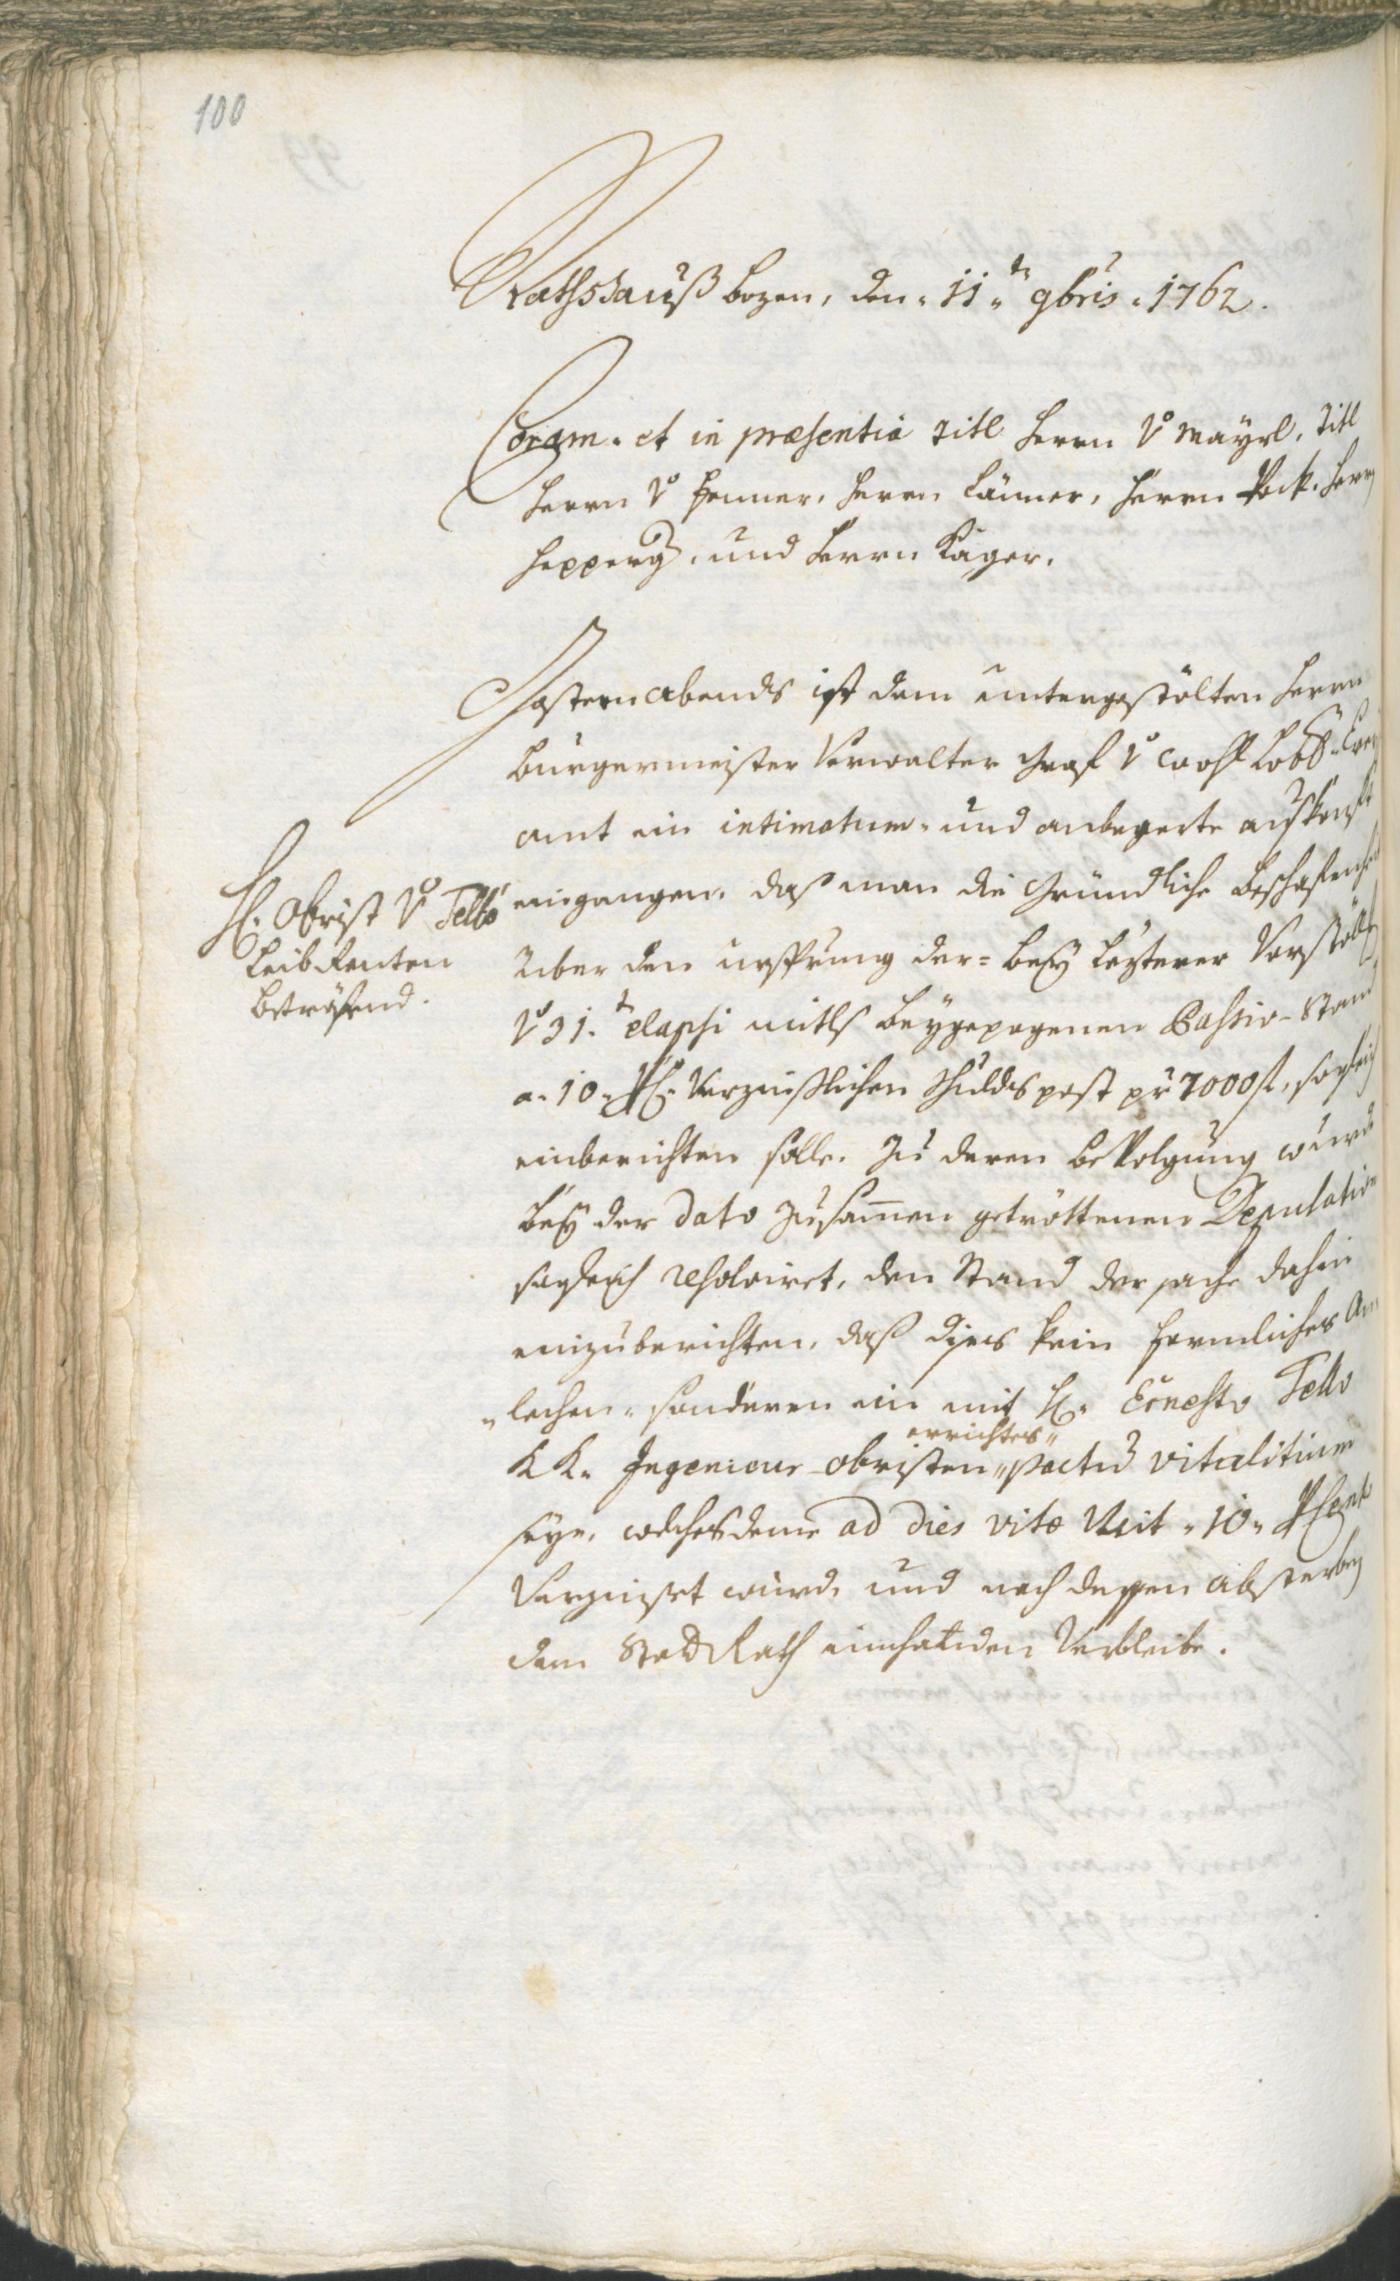 100
Rathshauß Bozen, den 11.ten 9bris 1762.
Coram et in præsentia Titl Herrn v. Mayrl, Titl
Herrn v. Henner, Herrn Länner, Herrn Pock, Herrn
Hepperg, und Herrn Kager.
Gestern abends ist dem untergestölten Herrn
Burgermeister Verwalter Graf v. Wohl Löbl.
amt ein intimatum und anbegerte auskonft
eingangen, daß man die Gründliche Beschafenheit
über den ursprung der bey lezterer Vorstöll
v. 31.t elapsi mitls beygezogenen Passiv-Stand
a 10 pC. Verzinßlichen schuldspost pr 7000 f, sogleich
einberichten solle. Zu deren befolgung wurde
bey der dato zusammen getröttenen Deputation
sogleich resolviret, den Stand der sache dahin
einzuberichten, daß dises kein formliches An-
lechen, sonderen ein mit H. Ernesto Tello
K K. Ingenieur obristen errichtes pactum vitalitium
seye, welches deme ad dies vitæ mit 10 pCento
Verzinset wurd, und nach dessen absterben
dem StadtRath einhanden Verbleibe.
H. Obrist v. Tello
Leib Renten
betröfend.